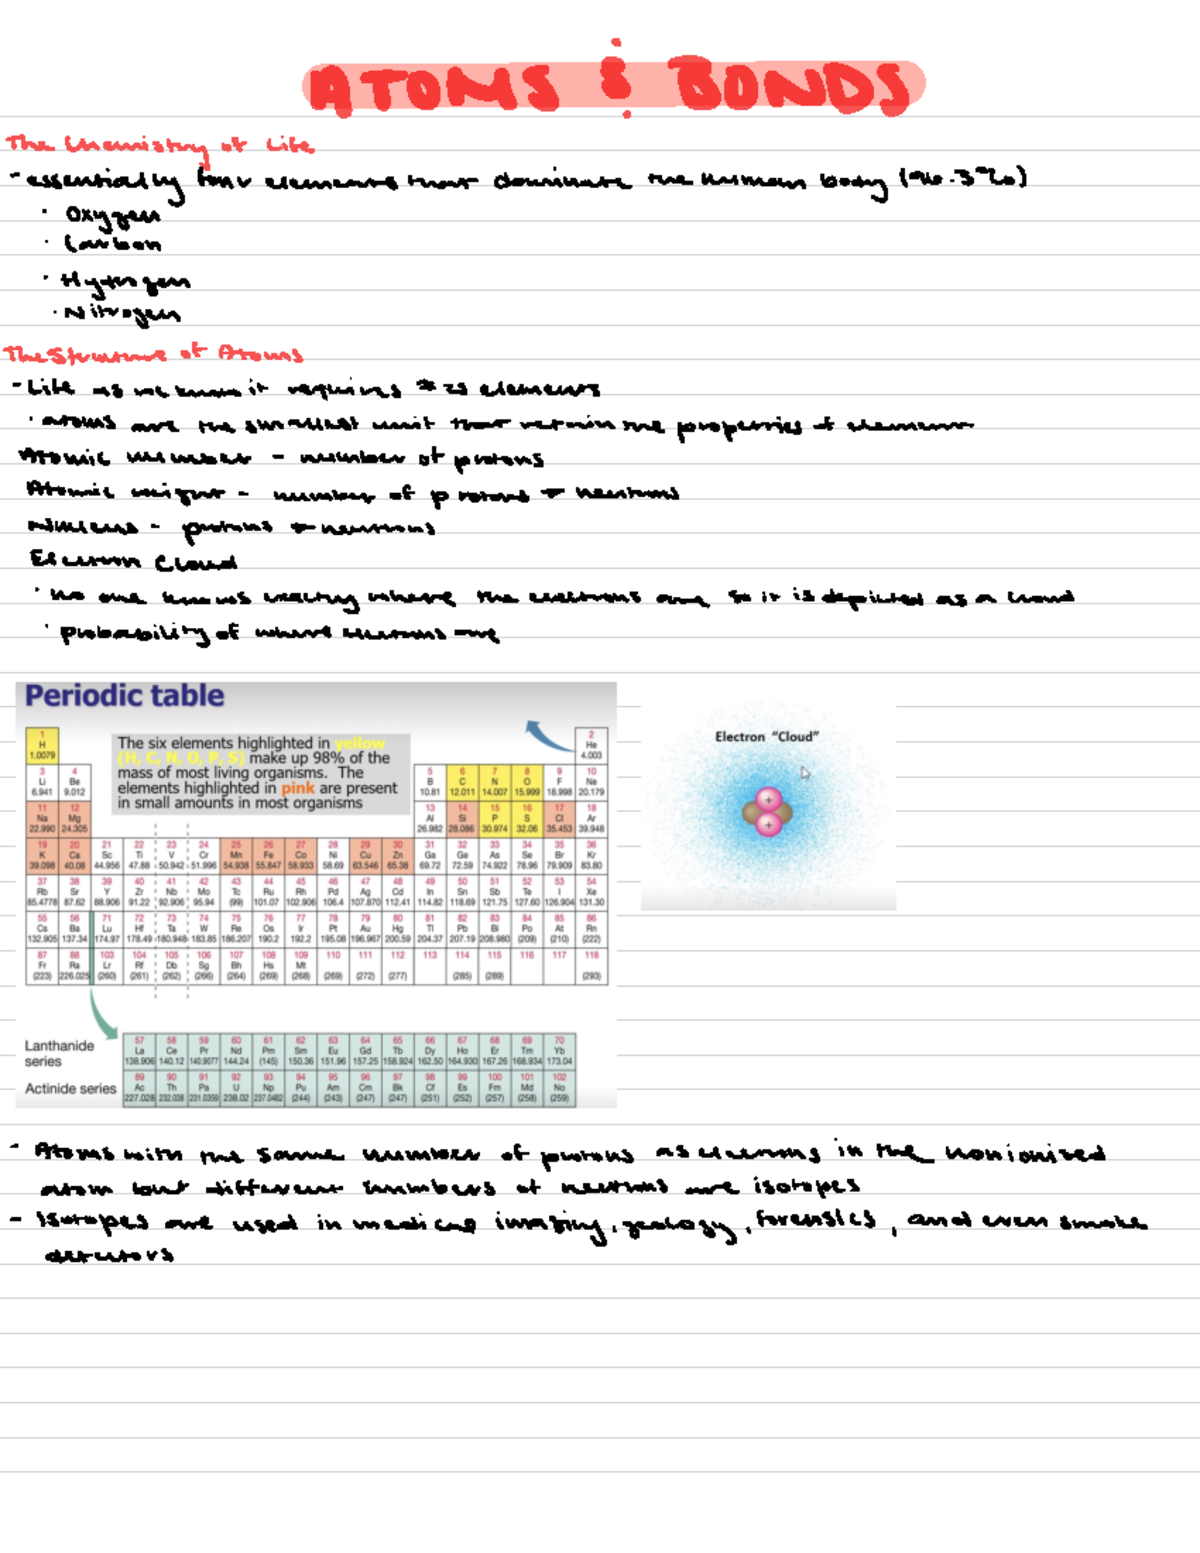 ATOMS & BONDS
The Chemistry of Life
- essentially four elements that dominate the human body (96.3%)
· Oxygen
· Carbon
· Hydrogen
· Nitrogen
The Structure of Atoms
- Life as we know it requires ≈ 25 elements
· atoms are the smallest unit that retain the properties of element
Atomic number - number of protons
Atomic weight - number of protons + neutrons
Nucleus - protons + neutrons
Electron Cloud
· no one knows exactly where the electrons are, so it is depicted as a cloud
· probability of where electrons are
Periodic table
The six elements highlighted in yellow
(H, C, N, O, P, S) make up 98% of the
mass of most living organisms. The
elements highlighted in pink are present
in small amounts in most organisms
Electron "Cloud"
1 2
H He
1.0079 4.003
3 4 5 6 7 8 9 10
Li Be B C N O F Ne
6.941 9.012 10.81 12.011 14.007 15.999 18.998 20.179
11 12 13 14 15 16 17 18
Na Mg Al Si P S Cl Ar
22.990 24.305 26.982 28.086 30.974 32.06 35.453 39.948
19 20 21 22 23 24 25 26 27 28 29 30 31 32 33 34 35 36
K Ca Sc Ti V Cr Mn Fe Co Ni Cu Zn Ga Ge As Se Br Kr
39.098 40.08 44.956 47.88 50.942 51.996 54.938 55.847 58.933 58.69 63.546 65.38 69.72 72.59 74.922 78.96 79.909 83.80
37 38 39 40 41 42 43 44 45 46 47 48 49 50 51 52 53 54
Rb Sr Y Zr Nb Mo Tc Ru Rh Pd Ag Cd In Sn Sb Te I Xe
85.4778 87.62 88.906 91.22 92.906 95.94 (99) 101.07 102.906 106.4 107.870 112.41 114.82 118.69 121.75 127.60 126.904 131.30
55 56 71 72 73 74 75 76 77 78 79 80 81 82 83 84 85 86
Cs Ba Lu Hf Ta W Re Os Ir Pt Au Hg Tl Pb Bi Po At Rn
132.905 137.34 174.97 178.49 180.948 183.85 186.207 190.2 192.2 195.08 196.967 200.59 204.37 207.19 208.980 (209) (210) (222)
87 88 103 104 105 106 107 108 109 110 111 112 113 114 115 116 117 118
Fr Ra Lr Rf Db Sg Bh Hs Mt
(223) 226.025 (260) (261) (262) (266) (264) (269) (268) (269) (272) (277) (285) (289) (293)
Lanthanide
series
57 58 59 60 61 62 63 64 65 66 67 68 69 70
La Ce Pr Nd Pm Sm Eu Gd Tb Dy Ho Er Tm Yb
138.906 140.12 140.9077 144.24 (145) 150.36 151.96 157.25 158.924 162.50 164.930 167.26 168.934 173.04
Actinide series
89 90 91 92 93 94 95 96 97 98 99 100 101 102
Ac Th Pa U Np Pu Am Cm Bk Cf Es Fm Md No
227.028 232.038 231.0359 238.02 237.0482 (244) (243) (247) (247) (251) (252) (257) (258) (259)
- Atoms with the same number of protons as electrons in the nonionized
atom but different numbers of neutrons are isotopes
- Isotopes are used in medical imaging, geology, forensics, and even smoke
detectors